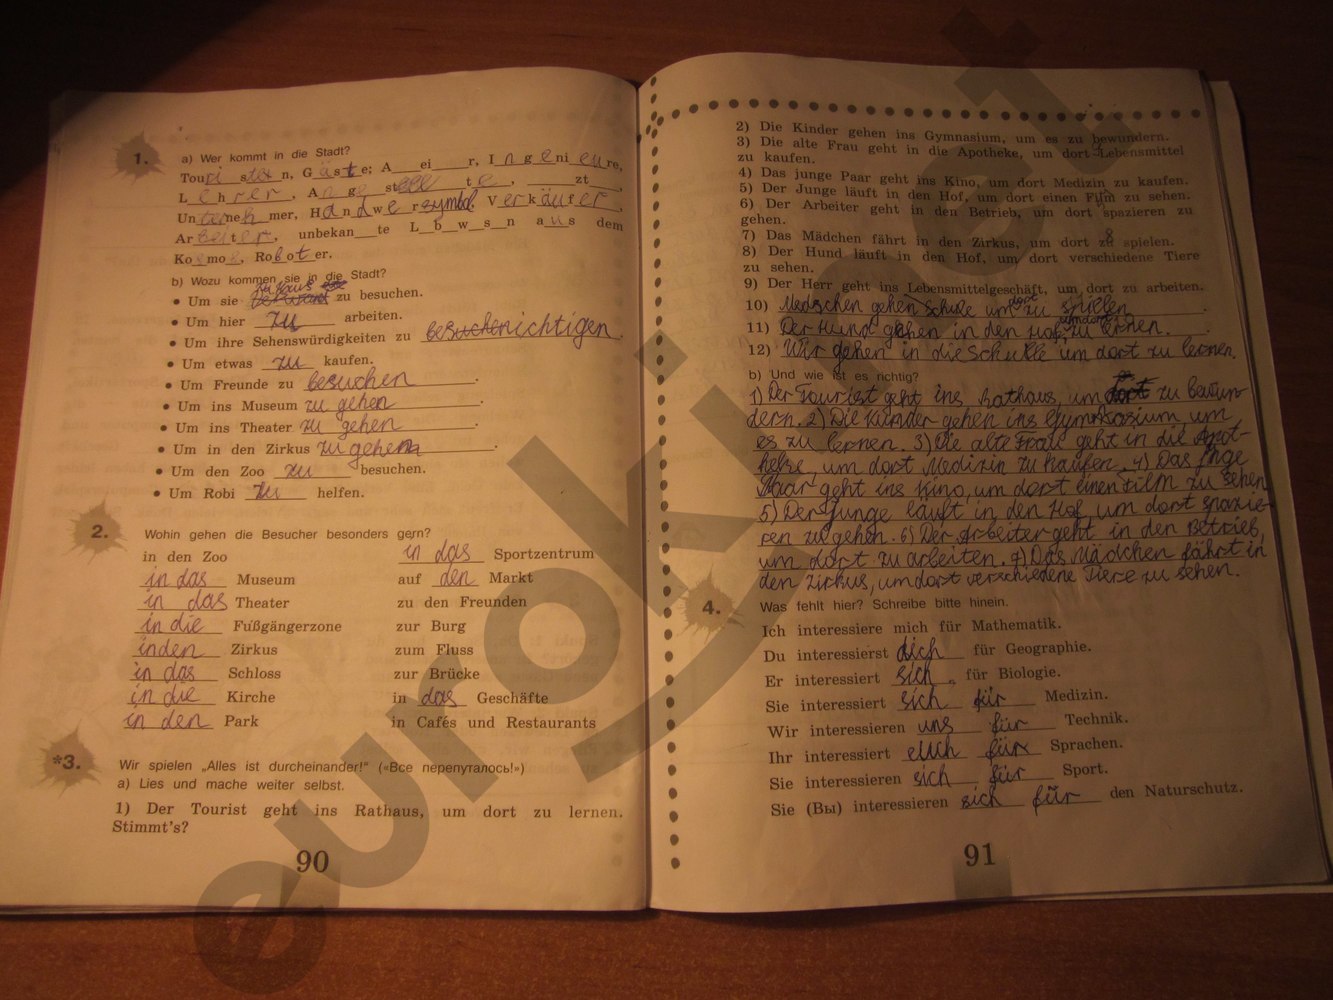 1. a) Wer kommt in die Stadt?
Touristen, Gäste; A__ei__r, Ingenieure,
Lehrer, Angestellte, ____zt__,
Unternehmer, Handwerker Verkäufer
Arbeiter, unbekan__te L__b__w__s__n aus dem
Kosmos, Roboter.
b) Wozu kommen sie in die Stadt?
• Um sie zu besuchen.
• Um hier zu arbeiten.
• Um ihre Sehenswürdigkeiten zu besuchenichtigen.
• Um etwas zu kaufen.
• Um Freunde zu besuchen.
• Um ins Museum zu gehen.
• Um ins Theater zu gehen.
• Um in den Zirkus zu gehen.
• Um den Zoo zu besuchen.
• Um Robi zu helfen.
2. Wohin gehen die Besucher besonders gern?
in den Zoo
in das Museum
in das Theater
in die Fußgängerzone
in den Zirkus
in das Schloss
in die Kirche
in den Park
in das Sportzentrum
auf den Markt
zu den Freunden
zur Burg
zum Fluss
zur Brücke
in das Geschäfte
in Cafés und Restaurants
*3. Wir spielen „Alles ist durcheinander!“ («Все перепуталось!»)
a) Lies und mache weiter selbst.
1) Der Tourist geht ins Rathaus, um dort zu lernen.
Stimmt's?
90
2) Die Kinder gehen ins Gymnasium, um es zu bewundern.
3) Die alte Frau geht in die Apotheke, um dort Lebensmittel
zu kaufen.
4) Das junge Paar geht ins Kino, um dort Medizin zu kaufen.
5) Der Junge läuft in den Hof, um dort einen Film zu sehen.
6) Der Arbeiter geht in den Betrieb, um dort spazieren zu
gehen.
7) Das Mädchen fährt in den Zirkus, um dort zu spielen.
8) Der Hund läuft in den Hof, um dort verschiedene Tiere
zu sehen.
9) Der Herr geht ins Lebensmittelgeschäft, um dort zu arbeiten.
10) Medschen gehen Schule um dort zu spielen
11) Der Hund gehen in den Hof, um dort zu lernen.
12) Wir gehen in die Schulle um dort zu lernen.
b) Und wie ist es richtig?
1) Der Tourist geht ins Rathaus, um es zu bewun-
dern. 2) Die Kinder gehen ins Gymnasium, um
es zu lernen. 3) Die alte Frau geht in die Apot-
heke, um dort Medizin zu kaufen. 4) Das junge
Paar geht ins Kino, um dort einen Film zu sehen
5) Der Junge läuft in den Hof, um dort spazie-
ren zu gehen. 6) Der Arbeiter geht in den Betrieb,
um dort zu arbeiten. 7) Das Mädchen fährt in
den Zirkus, um dort verschiedene Tiere zu sehen.
4. Was fehlt hier? Schreibe bitte hinein.
Ich interessiere mich für Mathematik.
Du interessierst dich für Geographie.
Er interessiert sich für Biologie.
Sie interessiert sich für Medizin.
Wir interessieren uns für Technik.
Ihr interessiert euch für Sprachen.
Sie interessieren sich für Sport.
Sie (Вы) interessieren sich für den Naturschutz.
91
euroki.net